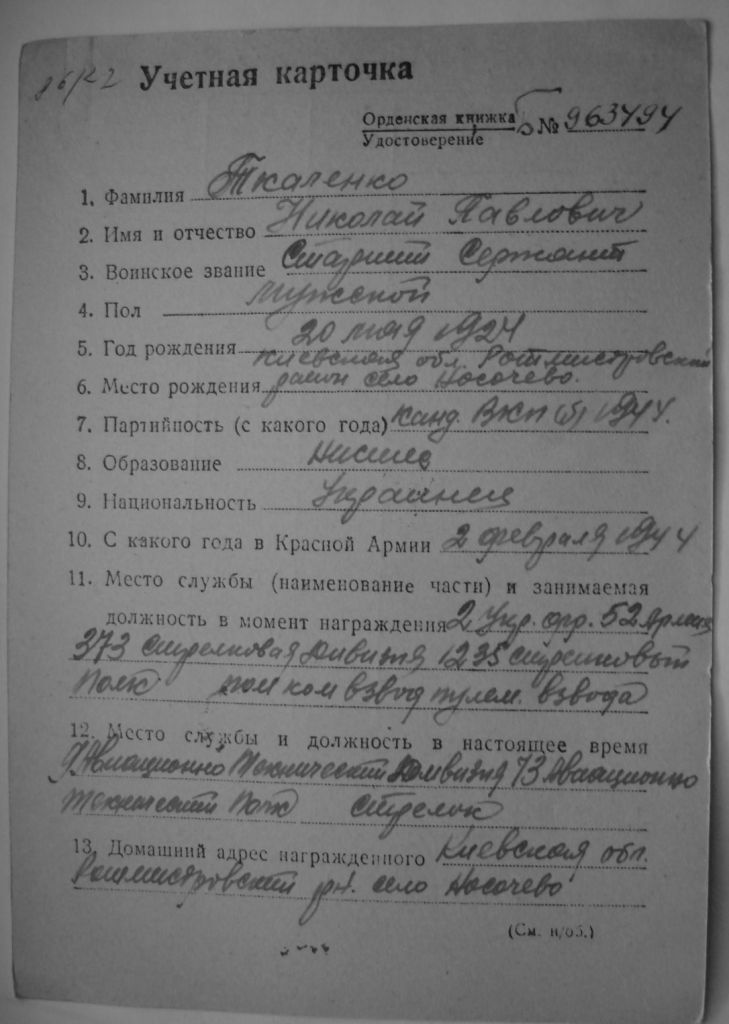 Учетная карточка
Орденская книжка Б № 963494
Удостоверение
1. Фамилия Ткаленко
2. Имя и отчество Николай Павлович
3. Воинское звание Старший Сержант
4. Пол мужской
5. Год рождения 20 мая 1924
Киевская обл. Ротмистровский
6. Место рождения район село Носачево.
7. Партийность (с какого года) канд. ВКП(б) 1944.
8. Образование Низшее
9. Национальность Украинец
10. С какого года в Красной Армии 2 февраля 1944
11. Место службы (наименование части) и занимаемая
должность в момент награждения 2 Укр. фр. 52 Армия
373 стрелковая дивизия 1235 стрелковый
Полк пом ком взвод пулем. взвода
12. Место службы и должность в настоящее время
9 Авиационно Технический Дивизия 73 Авиационно
технический Полк стрелок
13. Домашний адрес награжденного Киевская обл.
Ротмистровский рн. село Носачево
(См. н/об.)